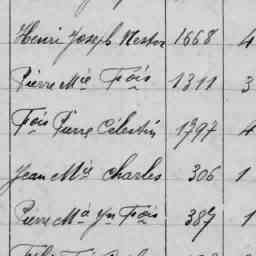 Henri Joseph Nestor 1668 4
Pierre Mie Fois 1311 3
Fois Pierre Célestin 1797 4
Jean Mie Charles 306 1
Pierre Ma Yn Fois 387 1